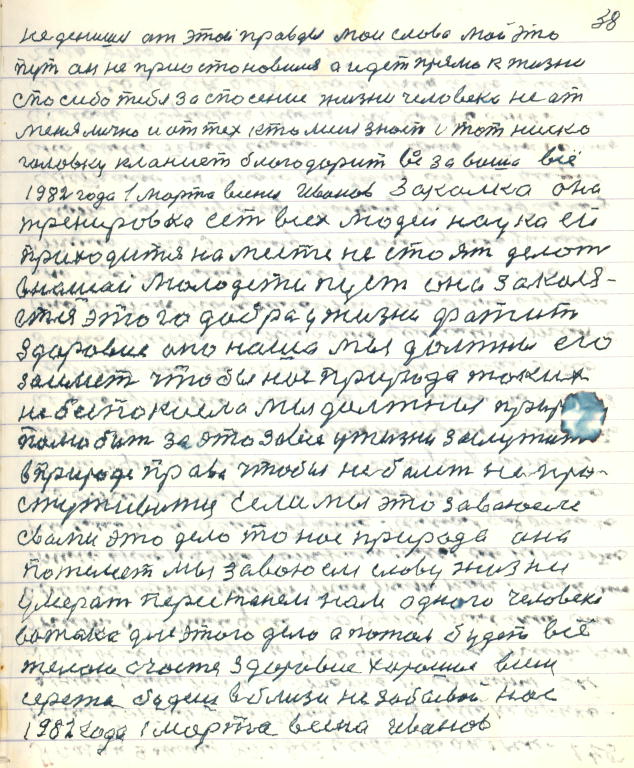 38
не денешся от этой правды мои слова мой это
пут он не приостоновился а идет прямо к жизни
спосибо тебя за спосение жизни человека не от
меня лично и от тех кто меня знает и тот ниско
головку кланиет благодорит вас за ваша всё
1982 года 1 марта весна Иванов Закалка она
тренировка ест всех людей наука ей
приходится на месте не стоят делат
внашай молодежи пуст она закаля-
ется этого добра у жизни фатит
Здоровие оно наша мы должны его
заимет чтобы нас природа таких
не беспокоела мы должны природу
полюбит за это завсе у жизни заслужит
вприроде права чтобы не болет не про-
стуживатся Если мы это завоюем
свами это дело то нас природа она
пожелеет мы завоюем славу жизни
умерат перестанем нам одного человека
вотака для этого дело а потом будет всё
желаю счастя здоровие хорошие всем
сережа будеш вблизи не забывай нас
1982 года 1 марта весна Иванов